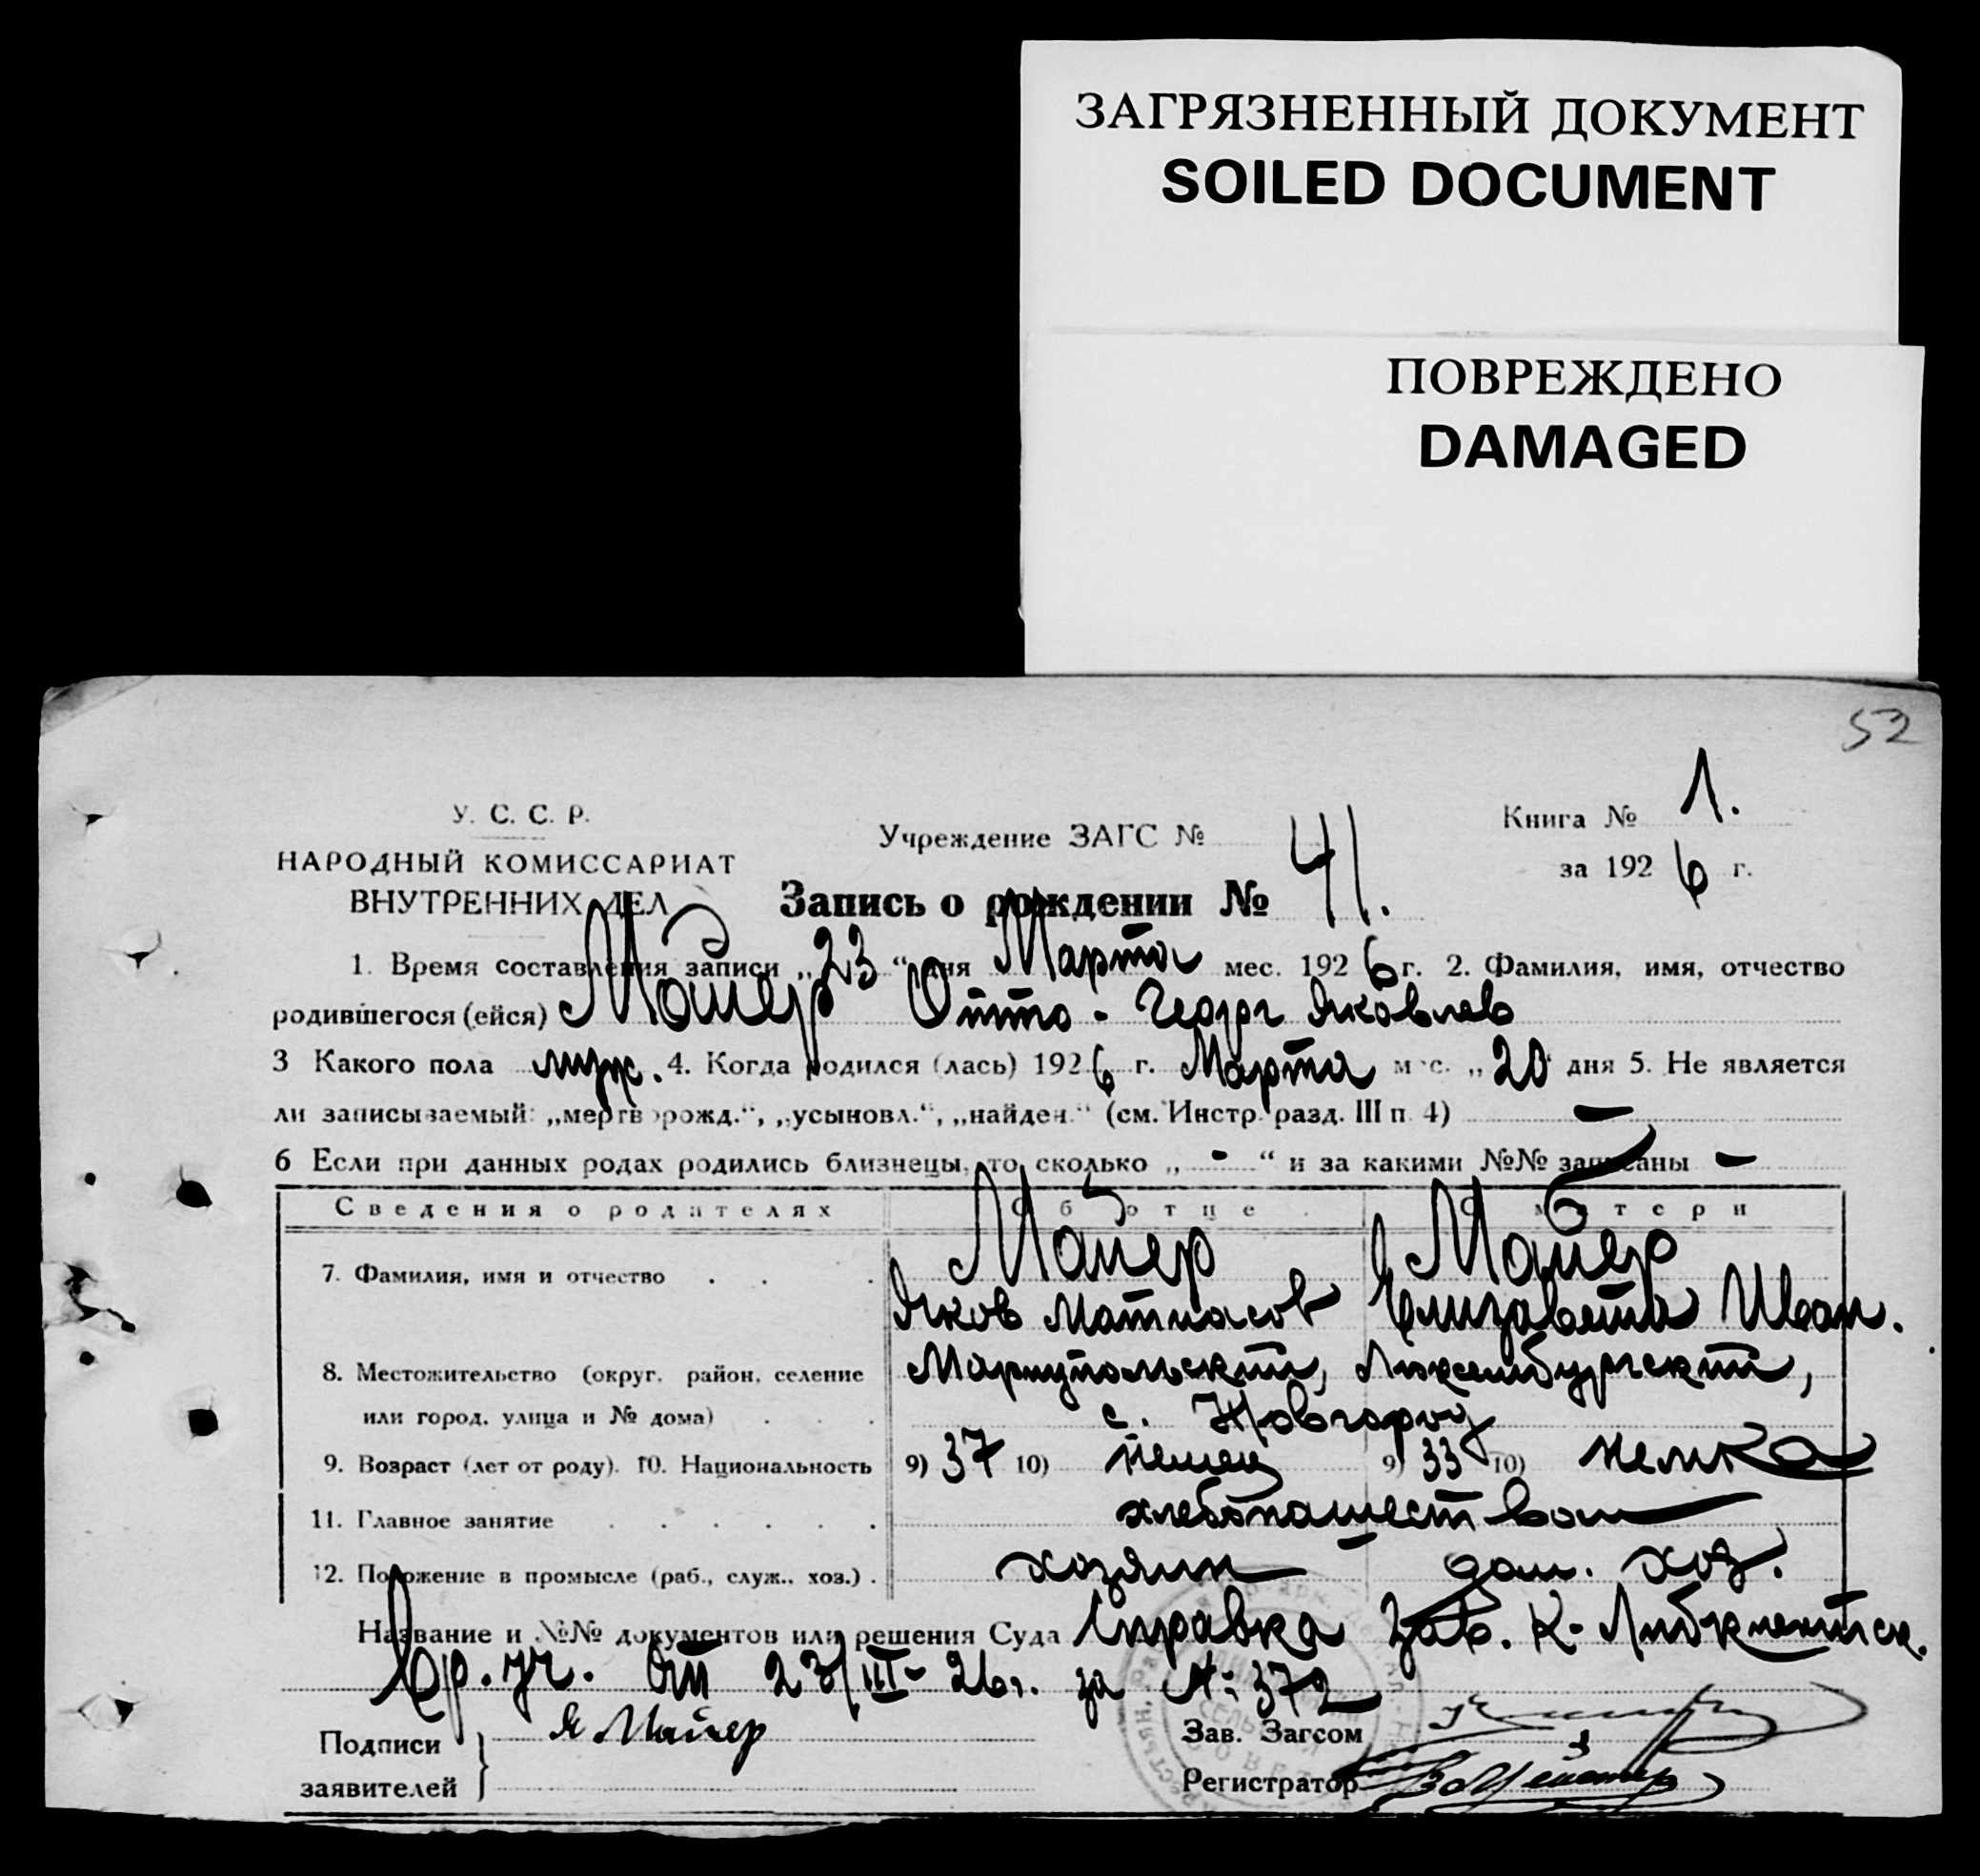 ЗАГРЯЗНЕННЫЙ ДОКУМЕНТ
SOILED DOCUMENT
ПОВРЕЖДЕНО
DAMAGED
52
У. С. С. Р.
НАРОДНЫЙ КОМИССАРИАТ
ВНУТРЕННИХ ДЕЛ
Учреждение ЗАГС №
Книга № 1.
за 1926 г.
Запись о рождении № 41.
1. Время составления записи „23“ дня Марта мес. 1926 г. 2. Фамилия, имя, отчество
родившегося (ейся) Майер Отто - Георг Яковлев
3 Какого пола муж. 4. Когда родился (лась) 1926 г. Марта мес. „20 дня 5. Не является
ли записываемый: „мертворожд.“, „усыновл.“, „найден.“ (см. Инстр. разд. III п. 4) —
6 Если при данных родах родились близнецы, то сколько „ - “ и за какими №№ записаны —
Сведения о родителях Об отце О матери
7. Фамилия, имя и отчество Майер Майер
Яков Матиасов Елизавета Иван.
8. Местожительство (округ, район, селение Мариупольский, Люксембургский,
или город, улица и № дома) с. Новгород
9. Возраст (лет от роду). 10. Национальность 9) 37 10) немец 9) 33 10) немка
11. Главное занятие хлебопашеством
12. Положение в промысле (раб., служ., хоз.) хозяин дом. хоз.
Название и №№ документов или решения Суда Справка Зав. К-Либкнехтск.
Вр. уч. от 23/III-26г. за №: 372
Подписи заявителей } Я Майер
Зав. Загсом
Регистратор